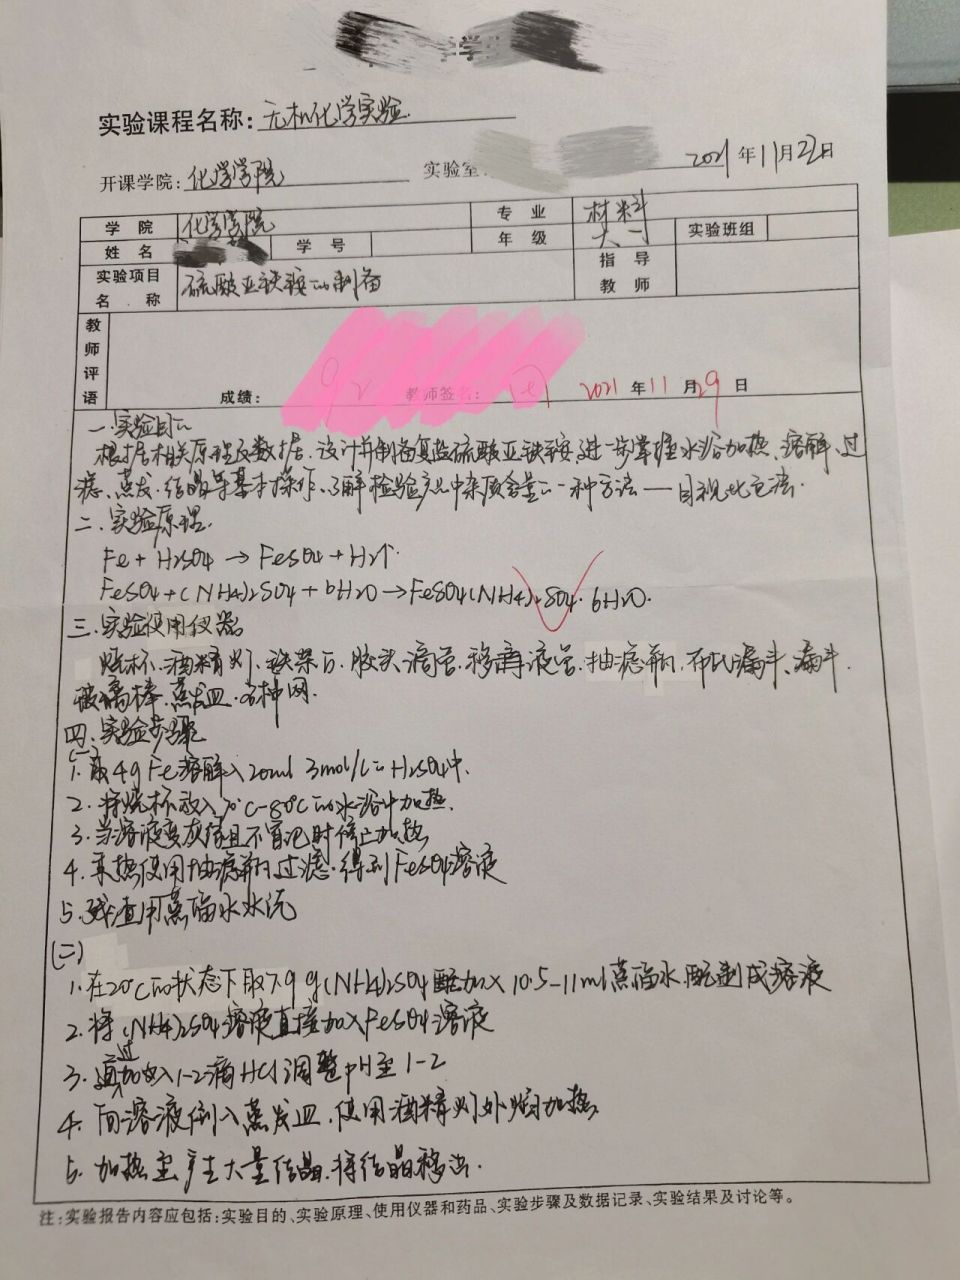 实验课程名称：无机化学实验
开课学院：化学学院 实验室： 2021年11月22日
学 院 化学学院 专 业 材料
姓 名 学 号 年 级 大一 实验班组
实验项目名 称 硫酸亚铁铵的制备 指 导教 师
教师评语
成绩： 92 教师签名： 2021年11月29日
一.实验目的
根据相关原理及数据,设计并制备复盐硫酸亚铁铵,进一步掌握水浴加热、溶解、过
滤、蒸发、结晶等基本操作、了解检验产品中杂质含量的一种方法——目视比色法.
二.实验原理.
Fe + H2SO4 → FeSO4 + H2↑.
FeSO4 + (NH4)2SO4 + 6H2O → FeSO4(NH4)2SO4·6H2O.
三.实验使用仪器
烧杯、酒精灯、铁架台、胶头滴管、移液管、抽滤瓶、布氏漏斗、漏斗.
玻璃棒、蒸发皿、石棉网.
四.实验步骤
(一)
1.取4g Fe溶解入20ml 3mol/L的H2SO4中.
2.将烧杯放入70°C-80°C的水浴中加热.
3.当溶液变灰绿且不冒泡时停止加热
4.趁热使用抽滤瓶过滤.得到FeSO4溶液
5.残渣用蒸馏水水洗
(二)
1.在20°C的状态下取7.9g(NH4)2SO4 加入10.5-11ml蒸馏水.配制成溶液
2.将(NH4)2SO4溶液直接加入FeSO4溶液
3.通过加入1-2滴HCl调整pH至1-2
4.向溶液倒入蒸发皿.使用酒精灯外焰加热
5.加热至产生大量结晶.将结晶移出.
注:实验报告内容应包括:实验目的、实验原理、使用仪器和药品、实验步骤及数据记录、实验结果及讨论等。